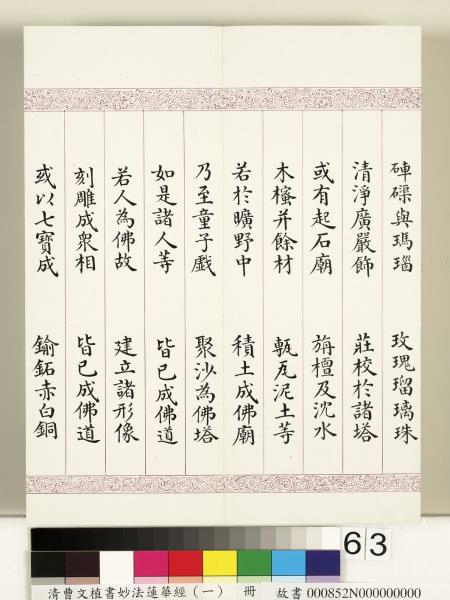 硨磲與瑪瑙 玫瑰瑠璃珠
清淨廣嚴飾 莊校於諸塔
或有起石廟 旃檀及沈水
木櫁并餘材 甎瓦泥土等
若於曠野中 積土成佛廟
乃至童子戲 聚沙為佛塔
如是諸人等 皆已成佛道
若人為佛故 建立諸形像
刻雕成眾相 皆已成佛道
或以七寶成 鍮鉐赤白銅
63
清曹文植書妙法蓮華經(一) 冊 故書 000852N000000000